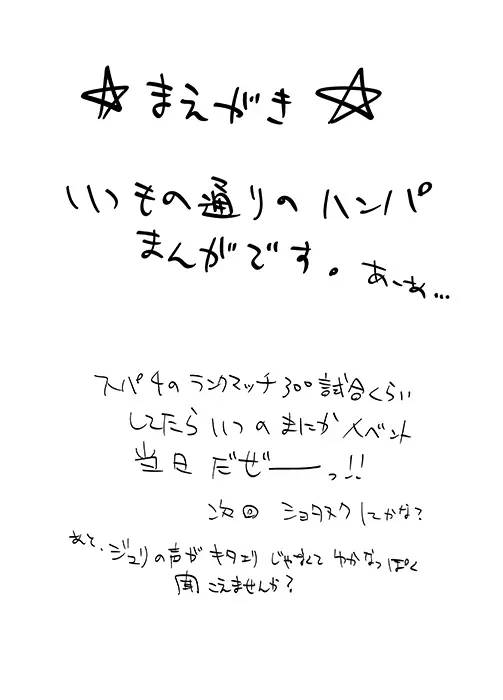 ☆まえがき☆
いつもの通りのハンパ
まんがです。あーあ…
スパ4のランクマッチ300試合くらい
してたらいつのまにかイベント
当日だぜーっ!!
次回 ショタヌクにかな?
あと、ジュリの声がキタエリじゃなくてゆかなっぽく
聞こえませんか?